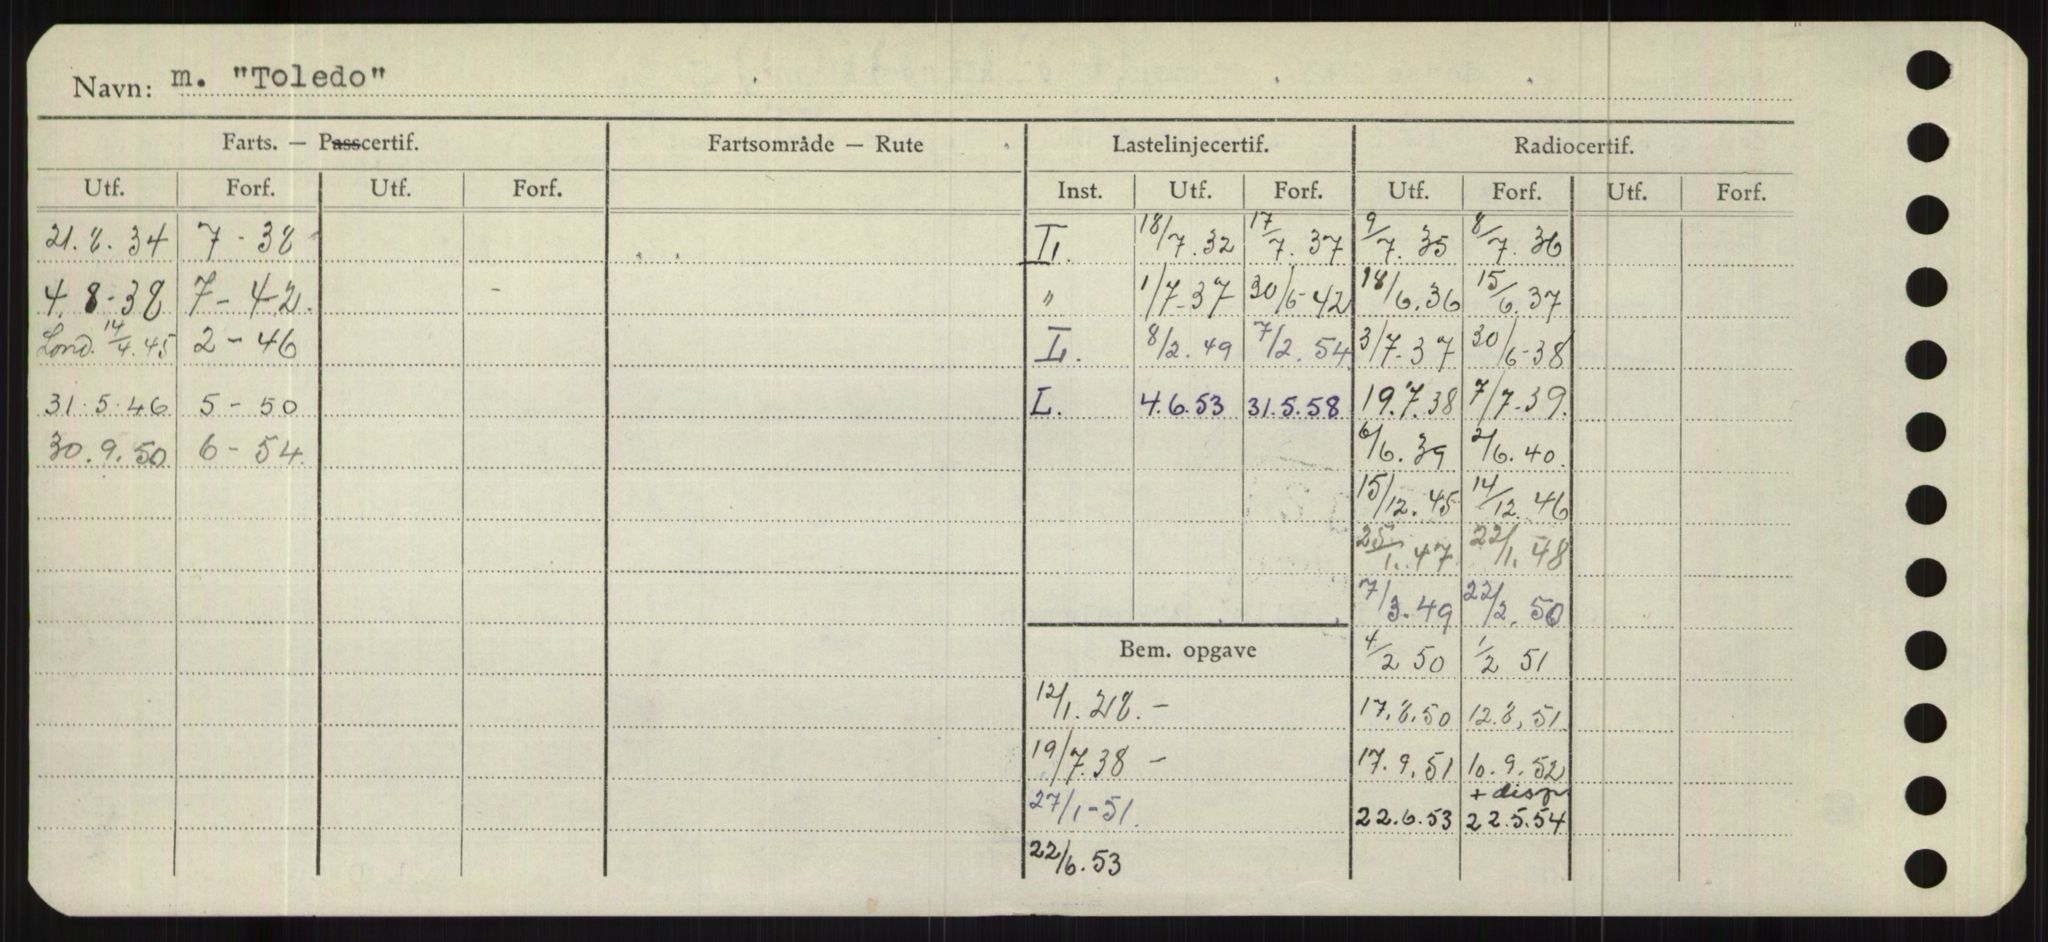 Navn: m. "Toledo"
Farts. — Passcertif. Fartsområde — Rute Lastelinjecertif. Radiocertif.
Utf. Forf. Utf. Forf. Inst. Utf. Forf. Utf. Forf. Utf. Forf.
21.8.34 7-38 L. 18/7.32 17/7.37 9/7.35 8/7.36
4.8-38 7-42. " 1/7-37 30/6-42 18/6.36 15/6.37
Lond. 14/4.45 2-46 L. 8/2.49 7/2.54 3/7-37 30/6-38
31.5.46 5-50 L. 4.6.53 31.5.58 19.7.38 7/7-39.
30.9.50 6-54 6/6.39 2/6.40.
15/12.45 14/12.46
25/1.47 22/1.48
7/3.49 22/2.50
Bem. opgave 4/2 50 1/2 51
12/1.28.- 17.8.50 12.8.51
19/7.38 - 17.9.51 10.9.52
+ disp
27/1-51. 22.6.53 22.5.54
22/6.53